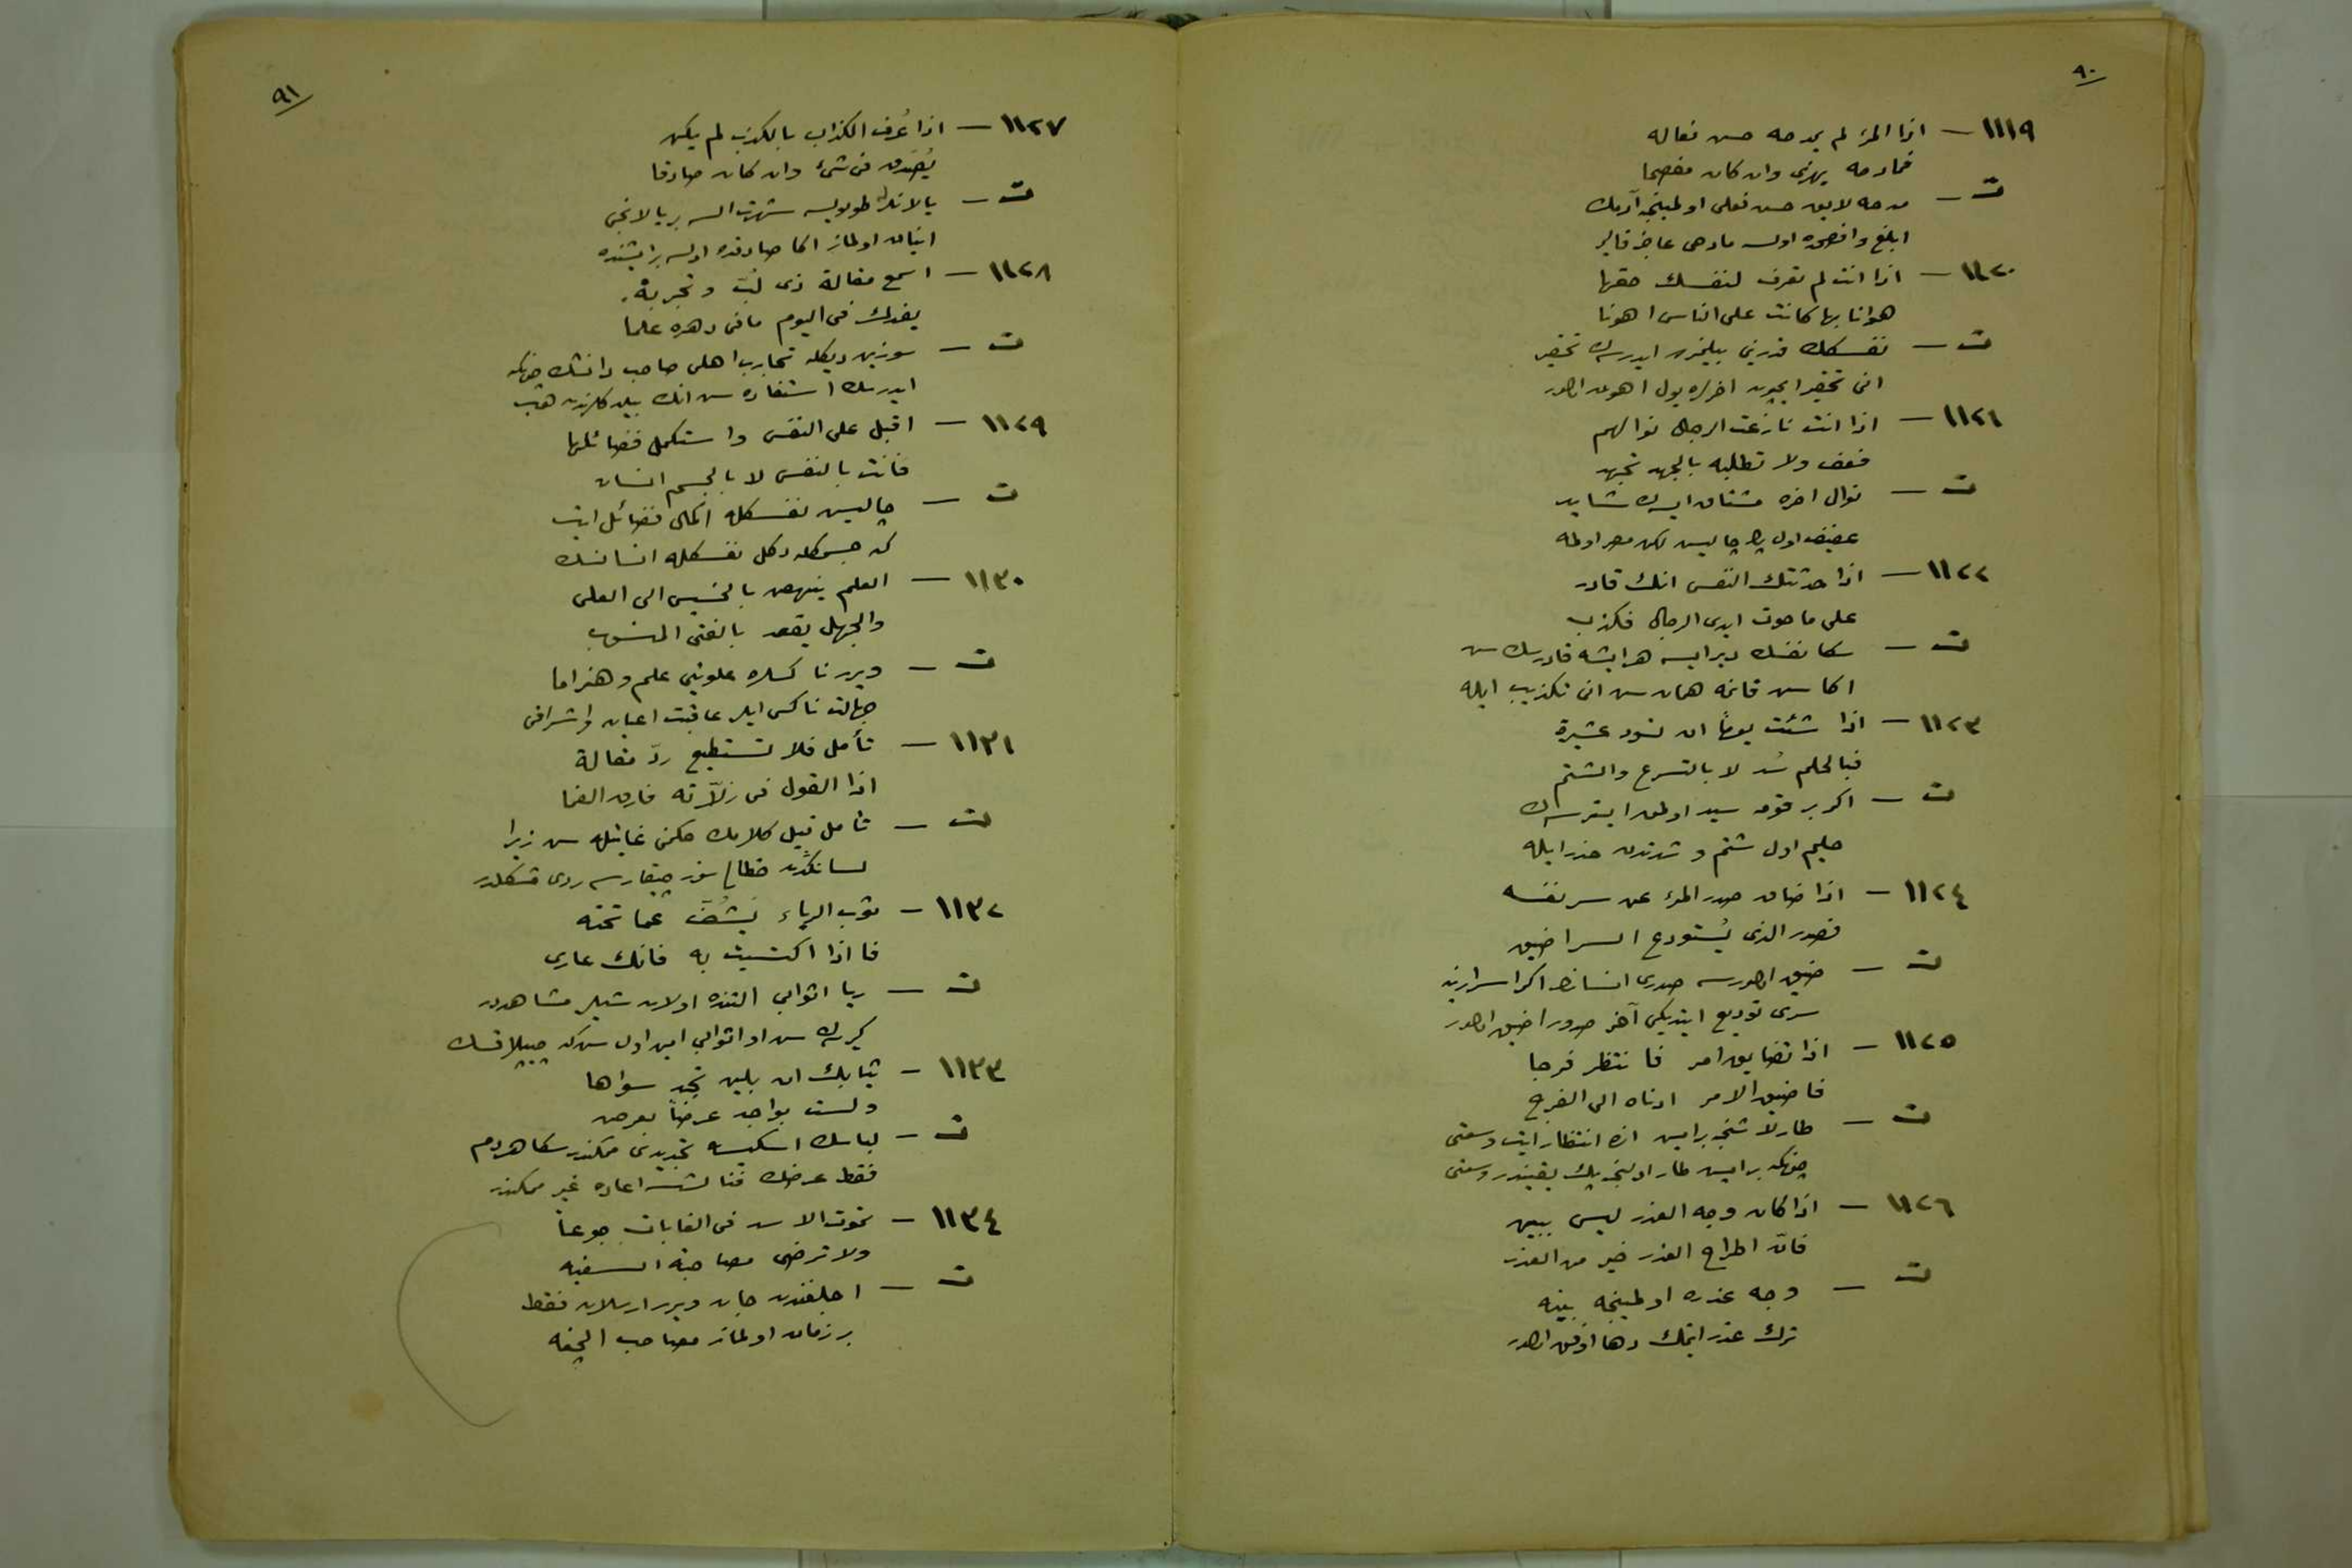 ٩٠
١١١٩ — اذا المرء لم يمدحه حسن فعاله
فمادحه يهذى وان كان مفصحا
ت — مدحه لايق حسن فعلى اولمينجه آدمك
ابلغ وافصحده اولسه مادحى عاجز قالير
١١٢٠ — اذا انت لم تعرف لنفسك حقها
هوانا بها كانت على الناس اهونا
ت — نفسكك قدرينى بيلميوب ايدرسك تحقير
انى تحقير ايچون اخره يول اهون اولور
١١٢١ — اذا انت نازعت الرجال نوالهم
فعف ولا تطلبه بالجهد تجهد
ت — نوال اخره مشتاق ايسه ك شايد
عفيف اول پك چاليس لكن مصر اولمه
١١٢٢ — اذا حدثتك النفس انك قادر
على ما حوت ايدى الرجال فكذب
ت — سكا نفسك ديرايسه هر ايشه قادرسك سن
اكا سن قانمه همان سن انى تكذيب ايله
١١٢٣ — اذا شئت يوماً ان تسود عشيرة
فبالحلم سُد لا بالتسرع والشتم
ت — اكر بر قومه سيد اولمق ايسترسه ك
حليم اول شتم و شدتدن حذر ايله
١١٢٤ — اذا ضاق صدر المرء عن سر نفسه
فصدر الذى يُستودع السر اضيق
ت — ضيق اولورسه صدرى انسانك اكر اسرارينه
سرى توديع ايتديكى آخر صدور اضيق اولور
١١٢٥ — اذا تضايق امر فانتظر فرجا
فاضيق الامر ادناه الى الفرج
ت — طارلاشنجه برايس اكا انتظار ايت وسعتى
چونكه برايس طار اولنجه پك يقيندر وسعتى
١١٢٦ — اذا كان وجه العذر ليس ببين
فانّ اطراح العذر خير من العذر
ت — وجه عذره اولمينجه بينه
ترك عذر ايتمك دها اوفق اولور
٩١
١١٢٧ — اذا عُرف الكذاب بالكذب لم يكن
يُصَدق فى شىء وان كان صادقا
ت — يالانله طويولسه شهرت السه بر يالانجى
اينان اولماز اكا صادقده اولسه بر ايشنده
١١٢٨ — اسمع مقالة ذى لبّ وتجربة.
يفدك فى اليوم ما فى دهره علما
ت — سوزين ديكله تجارب اهلى صاحب دانشك چونكه
ايدرسك استفاده سن انك بيلدكلرندن هپ
١١٢٩ — اقبل على النفس واستكمل فضائلها
فانت بالنفس لا بالجسم انسان
ت — چاليس نفسكله اكمال فضائل ايت
كه جسمكله دكل نفسكله انسانسك
١١٣٠ — العلم ينهض بالخسيس الى العلى
والجهل يقعد بالفتى المنسوب
ت — ويرر ناكسلره علويتى علم وهنر اما
جهالت ناكس ايلر عاقبت اعيان واشرافى
١١٣١ — تأمل فلا تستطيع ردّ مقالة
اذا القول فى زلاّته فارق الفما
ت — تأمل قبل كلامك حكمن غايتله سن زيرا
لسانكدن خطالى سوز چيقارسه ردى مشكلدر
١١٣٢ — ثوب الرياء يَشُفّ عما تحته
فاذا اكتسيت به فانك عارى
ت — ريا اثوابى التنده اولان شيلر مشاهددر
كيرسه ك سن او اثوابى امين اول سن كه چيپلاقسك
١١٣٣ — ثيابك ان بلين تجد سواها
ولست بواجد عرضاً بعرض
ت — لباسك اسكيسه تجديدى ممكندر سكا هردم
فقط عرضك فنالشسه اعاده غير ممكندر
١١٣٤ — تموت الاسد فى الغابات جوعاً
ولا ترضى مصاحبة السفيه
ت — اجلغندن جان ويرر ارسلان فقط
بر زمان اولماز مصاحب الچغه